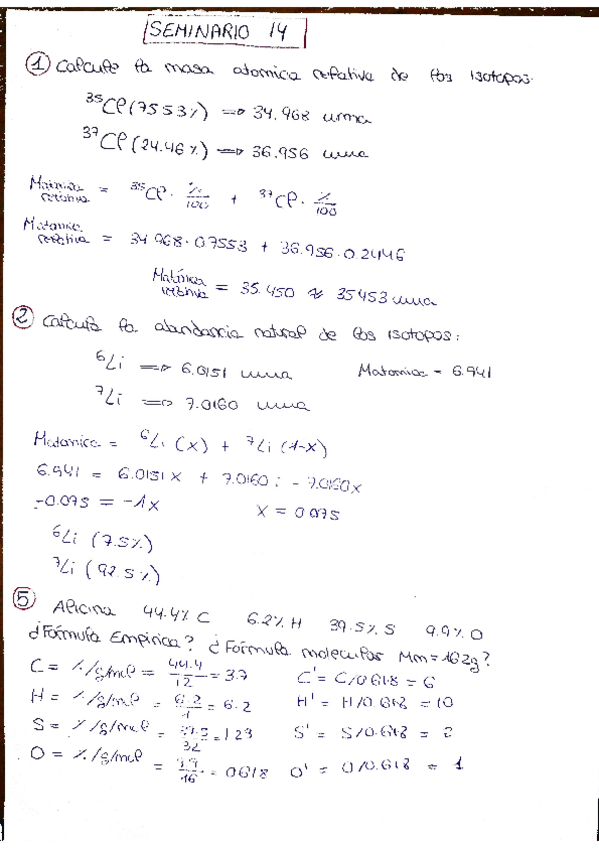 SEMINARIO 14
① Calcule la masa atomica relativa de los isotopos.
³⁵Cl (75 53%) => 34.968 uma
³⁷Cl (24.46%) => 36.956 uma
Matómica relativa = ³⁵Cl · %/100 + ³⁷Cl · %/100
Matomic relativa = 34 968 · 0.7553 + 36.956 · 0.2446
Matómica relativa = 35.450 ≈ 35 453 uma
② Calcula la abundancia natural de los isotopos:
⁶Li => 6.0151 uma Matomica = 6.941
⁷Li => 7.0160 uma
Matomica = ⁶Li (x) + ⁷Li (1-x)
6.941 = 6.0151 x + 7.0160 - 7.0160x
-0.075 = -1x x = 0.075
⁶Li (7.5%)
⁷Li (92.5%)
⑤ Alicina 44.4% C 6.2% H 39.5% S 9.9% O
¿Fórmula Empírica? ¿Fórmula molecular Mm = 162g?
C = %/g/mol = 44.4/12 = 3.7 C' = C/0.618 = 6
H = %/g/mol = 6.2/1 = 6.2 H' = H/0.618 = 10
S = %/g/mol = 39.5/32 = 1 23 S' = S/0.618 = 2
O = %/g/mol = 9.9/16 = 0618 O' = O/0.618 = 1